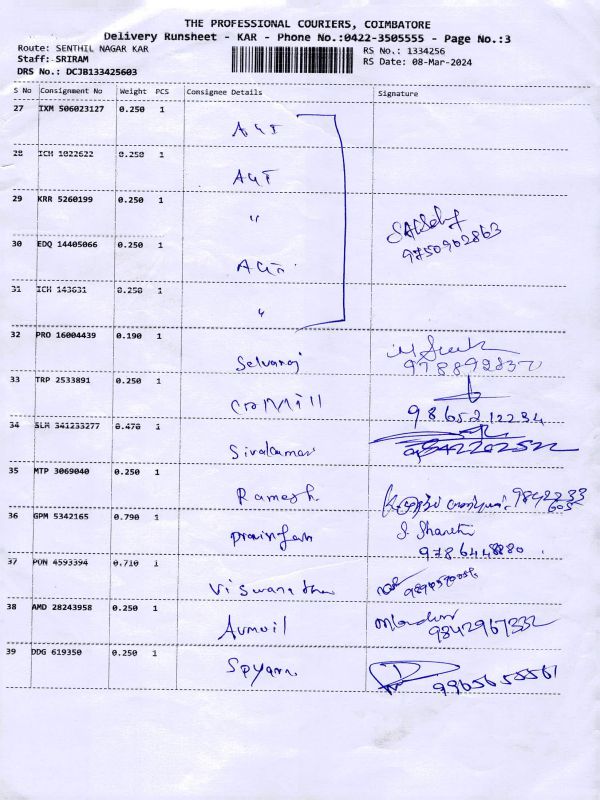 THE PROFESSIONAL COURIERS, COIMBATORE
Delivery Runsheet - KAR - Phone No.:0422-3505555 - Page No.:3
Route: SENTHIL NAGAR KAR
RS No.: 1334256
Staff: SRIRAM
RS Date: 08-Mar-2024
DRS No.: DCJB133425603
S No Consignment No Weight PCS Consignee Details Signature
27 IXM 506023127 0.250 1 AGI
28 ICH 1022622 0.250 1 AGI
29 KRR 5260199 0.250 1 "
9750902863
30 EDQ 14405066 0.250 1
31 ICH 143631 0.250 1 "
32 PRO 16004439 0.190 1 Selvaraj
33 TRP 2533891 0.250 1 9865212234
34 SLM 341233277 0.470 1 Sivakumar
35 MTP 3069040 0.250 1 Ramesh 9842233
605
36 GPM 5342165 0.790 1 S. Shanthi
37 PON 4593394 0.710 1 Viswanathan
38 AMD 28243958 0.250 1 9842967332
39 DDG 619350 0.250 1